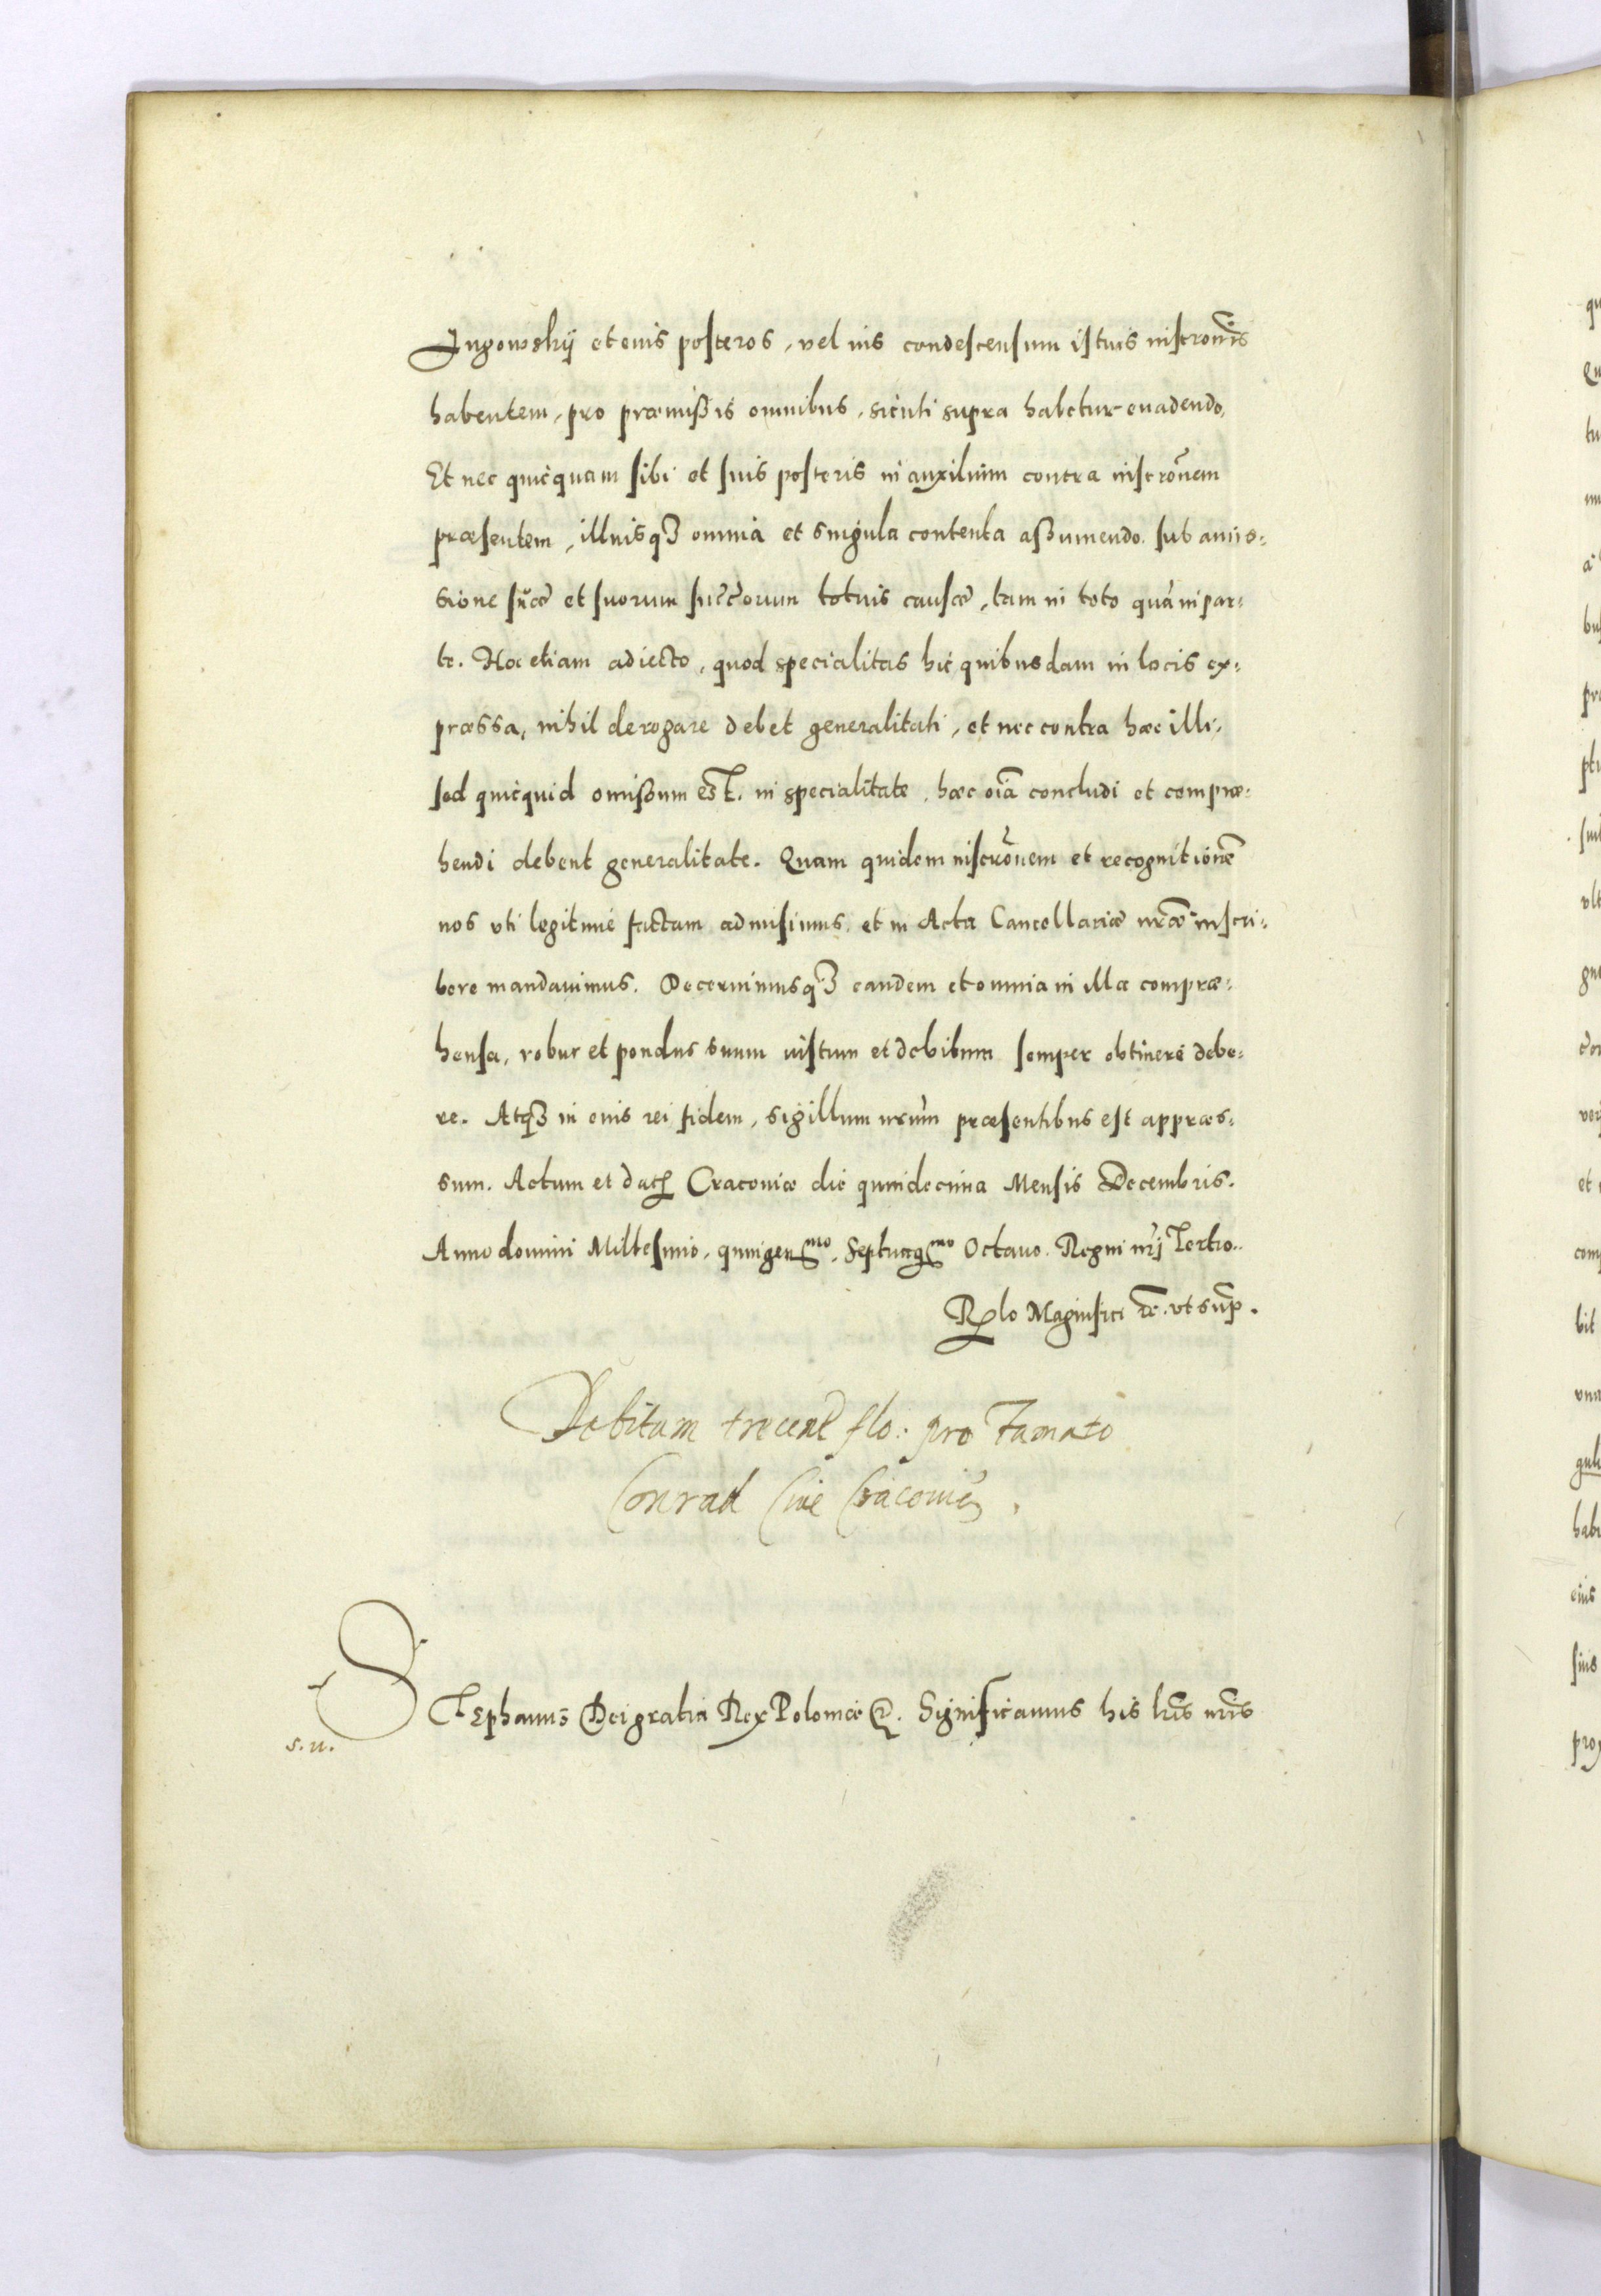 Jugowskij et eius posteros, vel ius condescensum istius inscrōnis
habentem, pro præmissis omnibus, sicuti supra habetur evadendo,
Et nec quicquam sibi et suis posteris in auxilium contra inscrōnem
præsentem, illiusq₃ omnia et singula contenta assumendo. sub amis-
sione suæ et suorum succorum totius causæ, tam in toto quàm in par-
te. Hoc etiam adiecto, quod specialitas hic quibusdam in locis ex-
præssa, nihil derogare debet generalitati, et nec contra hæc illi,
sed quicquid omissum est. in specialitate, hæc oīa concludi et compræ-
hendi debent generalitate. Quam quidem inscrōnem et recognitionē
nos uti legitimè factam admisimus, et in Acta Cancellariæ nr̄æ inscri-
bere mandavimus. Decernimusq₃ eandem et omnia in illa compræ-
hensa, robur et pondus suum iustum et debitum semper obtinere debe-
re. Atq₃ in eius rei fidem, sigillum nr̄um præsentibus est appræs-
sum. Actum et dat Cracoviæ die quindecima Mensis Decembris.
Anno domini Millesimo, quingenmo, Septuagmo Octavo. Regni nr̄j Tertio.
Rlo Magnifici etc. ut sup.
Debitum trecent flo: pro Famato
Conrad Cive Cracovien.
STephanus Dei gratia Rex Poloniæ etc. Significamus his lr̄is nr̄is
s. n.